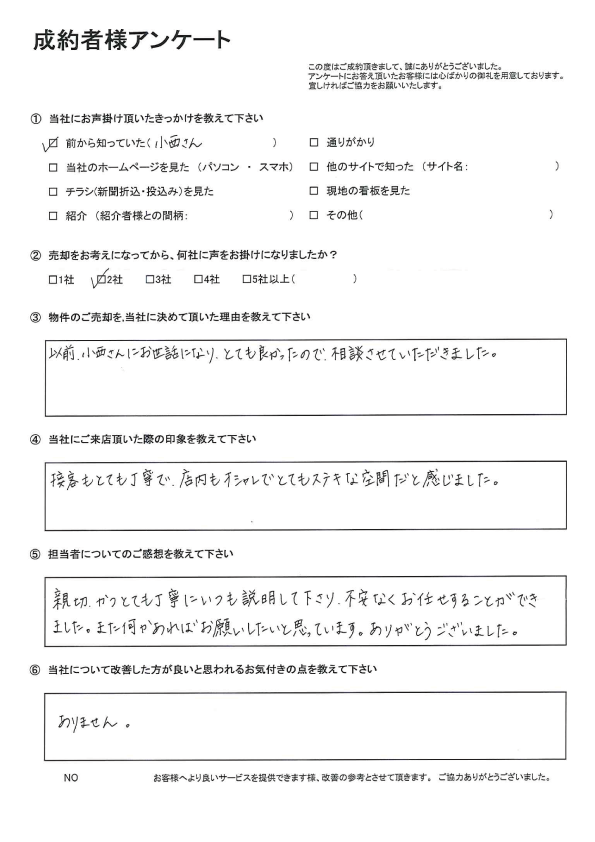 成約者様アンケート
この度はご成約頂きまして、誠にありがとうございました。
アンケートにお答え頂いたお客様には心ばかりの御礼を用意しております。
宜しければご協力をお願いいたします。
① 当社にお声掛け頂いたきっかけを教えて下さい
☑ 前から知っていた( 小西さん )
□ 通りがかり
□ 当社のホームページを見た (パソコン ・ スマホ)
□ 他のサイトで知った (サイト名: )
□ チラシ(新聞折込・投込み)を見た
□ 現地の看板を見た
□ 紹介 (紹介者様との間柄: )
□ その他( )
② 売却をお考えになってから、何社に声をお掛けになりましたか？
□1社 ☑2社 □3社 □4社 □5社以上( )
③ 物件のご売却を,当社に決めて頂いた理由を教えて下さい
以前、小西さんにお世話になり、とても良かったので、相談させていただきました。
④ 当社にご来店頂いた際の印象を教えて下さい
接客もとても丁寧で、店内もオシャレでとてもステキな空間だと感じました。
⑤ 担当者についてのご感想を教えて下さい
親切、かつとても丁寧にいつも説明して下さり、不安なくお任せすることができ
ました。また何かあればお願いしたいと思っています。ありがとうございました。
⑥ 当社について改善した方が良いと思われるお気付きの点を教えて下さい
ありません。
NO
お客様へより良いサービスを提供できます様、改善の参考とさせて頂きます。 ご協力ありがとうございました。